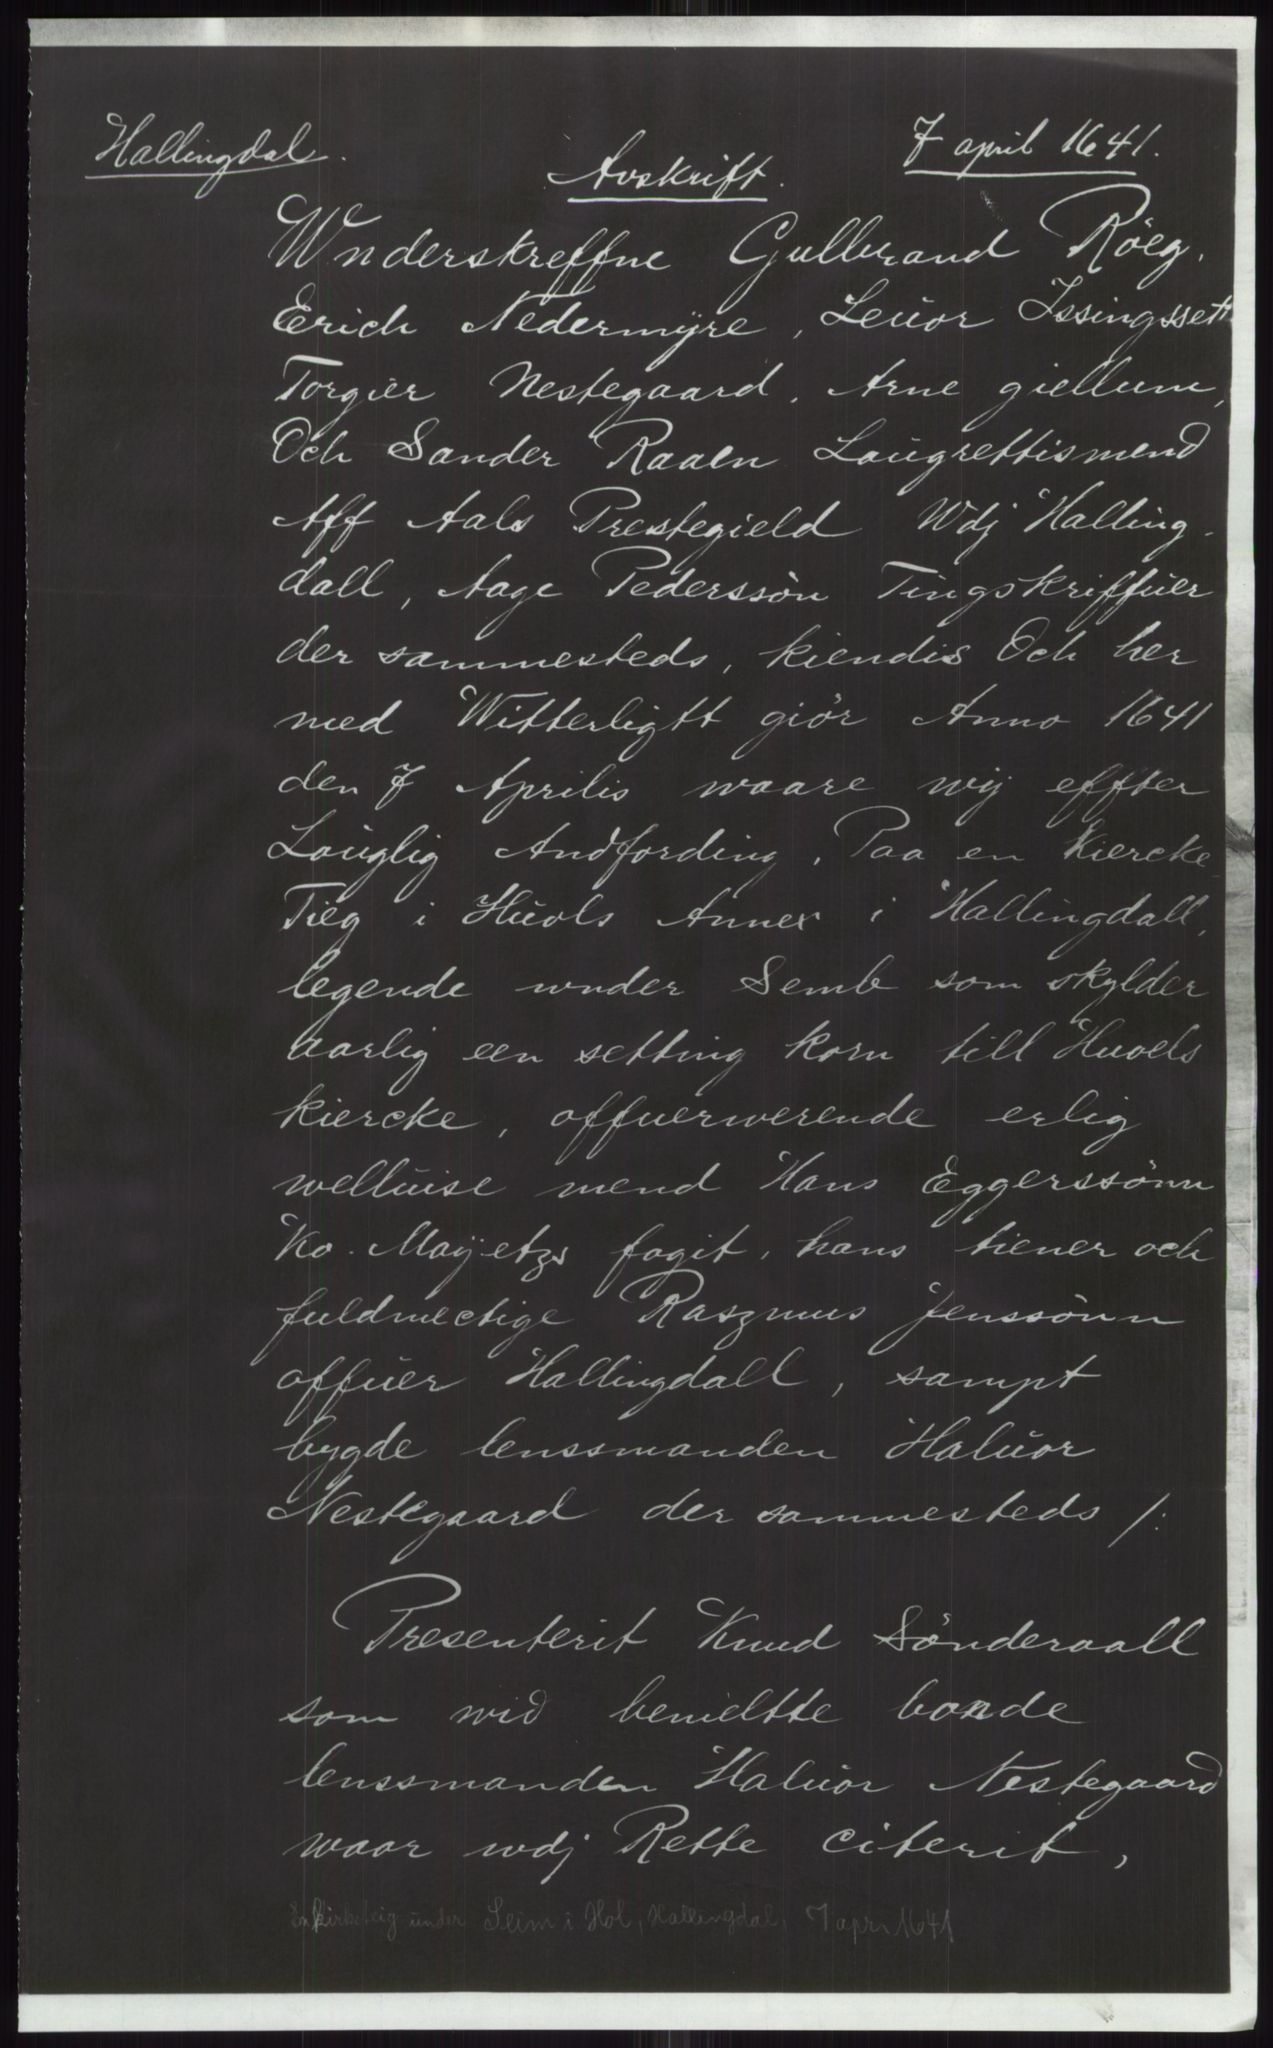 Hallingdal.
7 april 1641.
Avskrift.
Wnderskreffne Gulbrand Röeg,
Erich Nedermÿre, Leüor Issingssett
Torgier Nestegaard, Arne giellum,
Och Sander Raaen Laugrettismend
Aff Aals Prestegield Wdj Halling-
dall, Aage Pederssön Tingskriffüer
der sammesteds, kiendis Och her
med Witterligtt giör Anno 1641
den 7 Aprilis waare wij effter
Louglig Andfording, Paa en Kiercke
Tieg i Huols Annex i Hallingdall,
legende wnder Semb som skylder
aarlig een setting korn till Huoels
kiercke, offuerwerende erlig
welluise mend Hans Eggerssönn
Ko. Maÿetzs fogit, hans tiener och
fuldmectige Raszmus Jenssönn
offüer Hallingdall, sampt
bygde lenssmanden Haluor
Nestegaard der sammesteds /:
Presenterit Knud Sönderaall
som wid bemeltte bonde
lenssmanden Halüor Nestegaard
waar wdj Rette citerit,
En kirketeig under Seim i Hol, Hallingdal, 7 apr. 1641